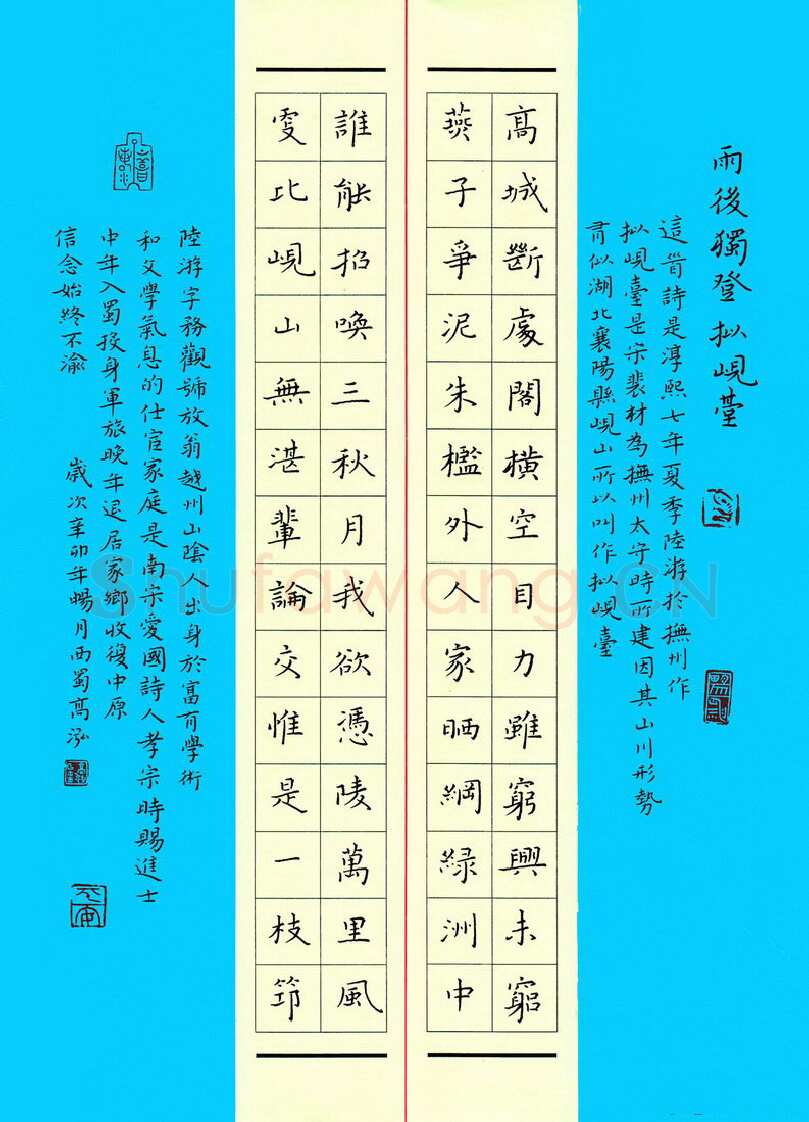 雨後獨登拟峴臺
這首詩是淳熙七年夏季陸游於撫州作
拟峴臺是宋裴材為撫州太守時所建因其山川形勢
有似湖北襄陽縣峴山所以叫作拟峴臺
高城斷處閣橫空目力雖窮興未窮
燕子爭泥朱檻外人家晒網緑洲中
誰能招喚三秋月我欲憑陵萬里風
更比峴山無湛輩論交惟是一枝筇
陸游字務觀號放翁越州山陰人出身於富有學術
和文學氣息的仕宦家庭是南宋愛國詩人孝宗時賜進士
中年入蜀投身軍旅晚年退居家鄉收復中原
信念始終不渝
歲次辛卯年暢月西蜀高泓
Shufawang.CN